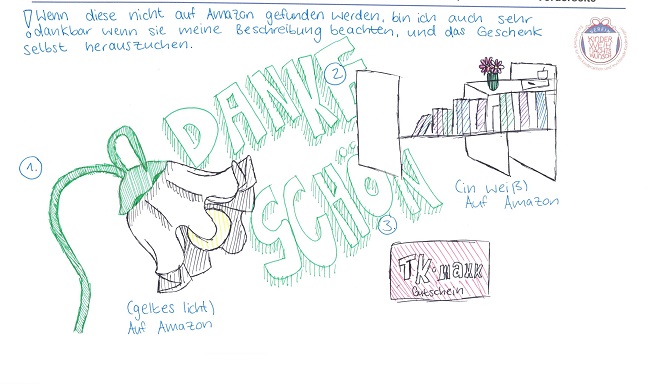 ! Wenn diese nicht auf Amazon gefunden werden, bin ich auch sehr
dankbar wenn sie meine Beschreibung beachten, und das Geschenk
selbst herauszuchen.
DANKE
SCHÖN
1.
(gelbes licht)
Auf Amazon
2
(in weiß)
Auf Amazon
3
TK·maxx
Gutschein
KINDER
WEIH
NACHTS
WUNSCH